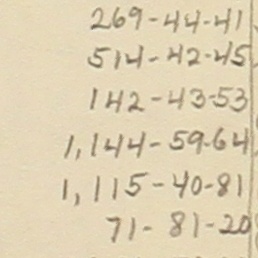 269-44-41
514-42-45
142-43-53
1,144-59-64
1,115-40-81
71-81-20